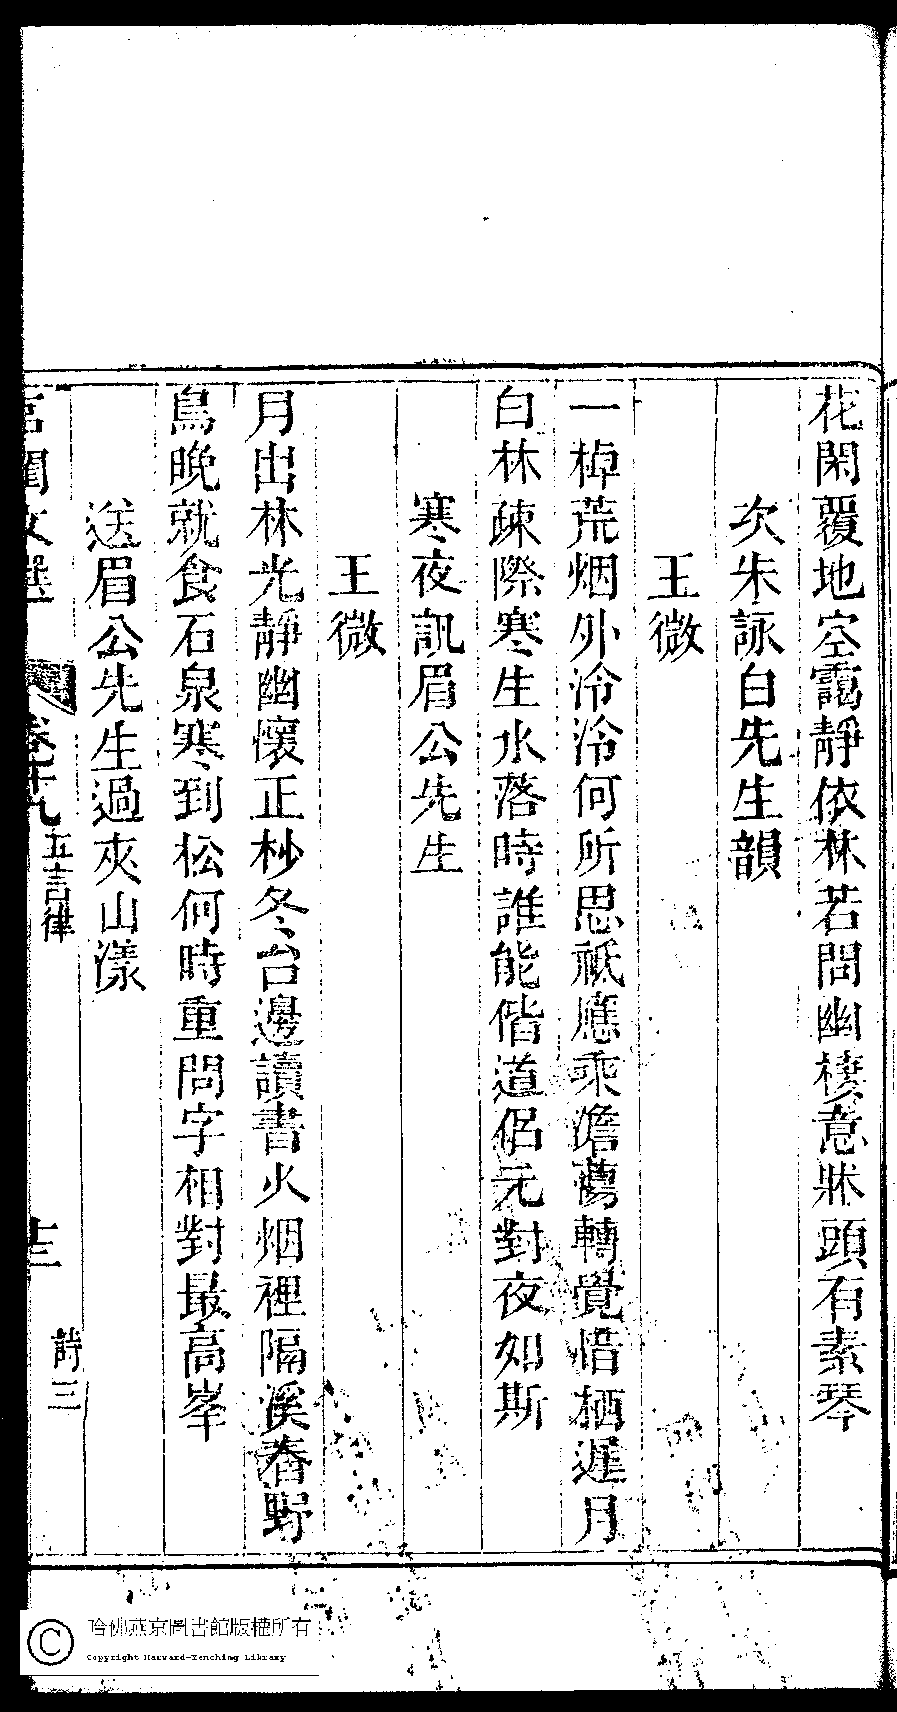 花閑覆地空靄靜依林若問幽棲意牀頭有素琴
次朱詠白先生韻
王微
一棹荒烟外泠泠何所思祗應乘澹蕩轉覺惜栖遲月
白林疎際寒生水落時誰能偕道侶元對夜如斯
寒夜訊眉公先生
王微
月出林光靜幽懷正杪冬台邊讀書火烟裡隔溪舂野
鳥晚就食石泉寒到松何時重問字相對最高峯
送眉公先生過夾山漾
宮閨文選
卷十九
五言律
十三
詩三
哈佛燕京圖書館版權所有
Copyright Harvard-Yenching Library